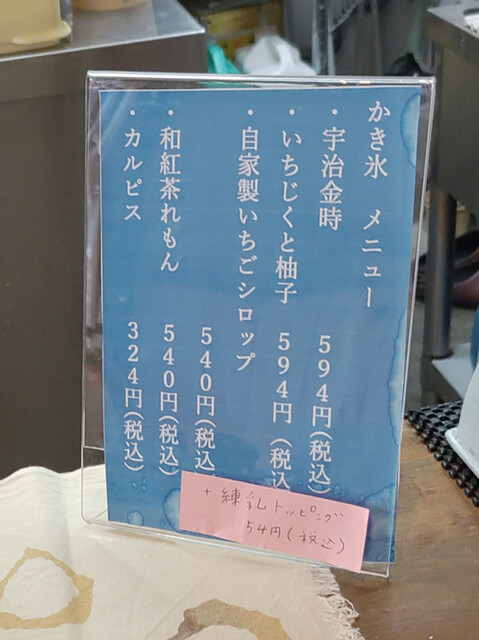 かき氷 メニュー
・宇治金時 594円(税込)
・いちじくと柚子 594円(税込
・自家製いちごシロップ
540円(税込
・和紅茶れもん 540円(税込)
・カルピス 324円(税込)
+練乳トッピング
54円(税込)